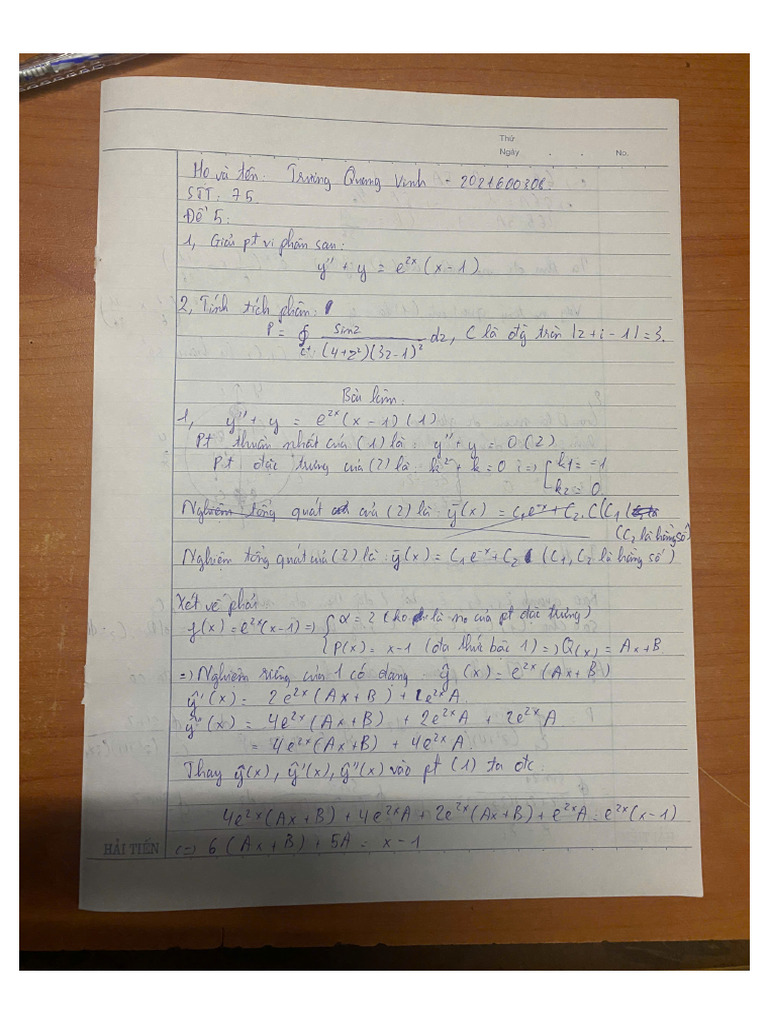 Thứ
Ngày . . No.
Họ và tên: Trương Quang Vinh - 2021600306
STT: 75.
Đề 5:
1, Giải pt vi phân sau:
y'' + y = e^{2x}(x-1)
2, Tính tích phân:
P = ∮_{C+} \frac{sin z}{(4+z²)(3z-1)²} dz, C là đg tròn |z+i-1|=3.
Bài làm:
1, y'' + y = e^{2x}(x-1) (1)
Pt thuần nhất của (1) là: y'' + y = 0 (2)
Pt đặc trưng của (2) là: k² + k = 0 => [k1 = -1
k2 = 0
Nghiệm tổng quát của (2) là ȳ(x) = C₁e^{-x} + C₂
(C₂ là hằng số)
Nghiệm tổng quát của (2) là: ȳ(x) = C₁e^{-x} + C₂ (C₁, C₂ là hằng số)
Xét vế phải
f(x) = e^{2x}(x-1) => {α = 2 (ko là no của pt đặc trưng)
P(x) = x-1 (đa thức bậc 1) => Q(x) = Ax+B
=> Nghiệm riêng của 1 có dạng ŷ(x) = e^{2x}(Ax+B)
ŷ'(x) = 2e^{2x}(Ax+B) + e^{2x}A
ŷ''(x) = 4e^{2x}(Ax+B) + 2e^{2x}A + 2e^{2x}A
= 4e^{2x}(Ax+B) + 4e^{2x}A
Thay ŷ(x), ŷ'(x), ŷ''(x) vào pt (1) ta đc:
4e^{2x}(Ax+B) + 4e^{2x}A + 2e^{2x}(Ax+B) + e^{2x}A = e^{2x}(x-1)
HẢI TIẾN (=) 6(Ax+B) + 5A = x-1